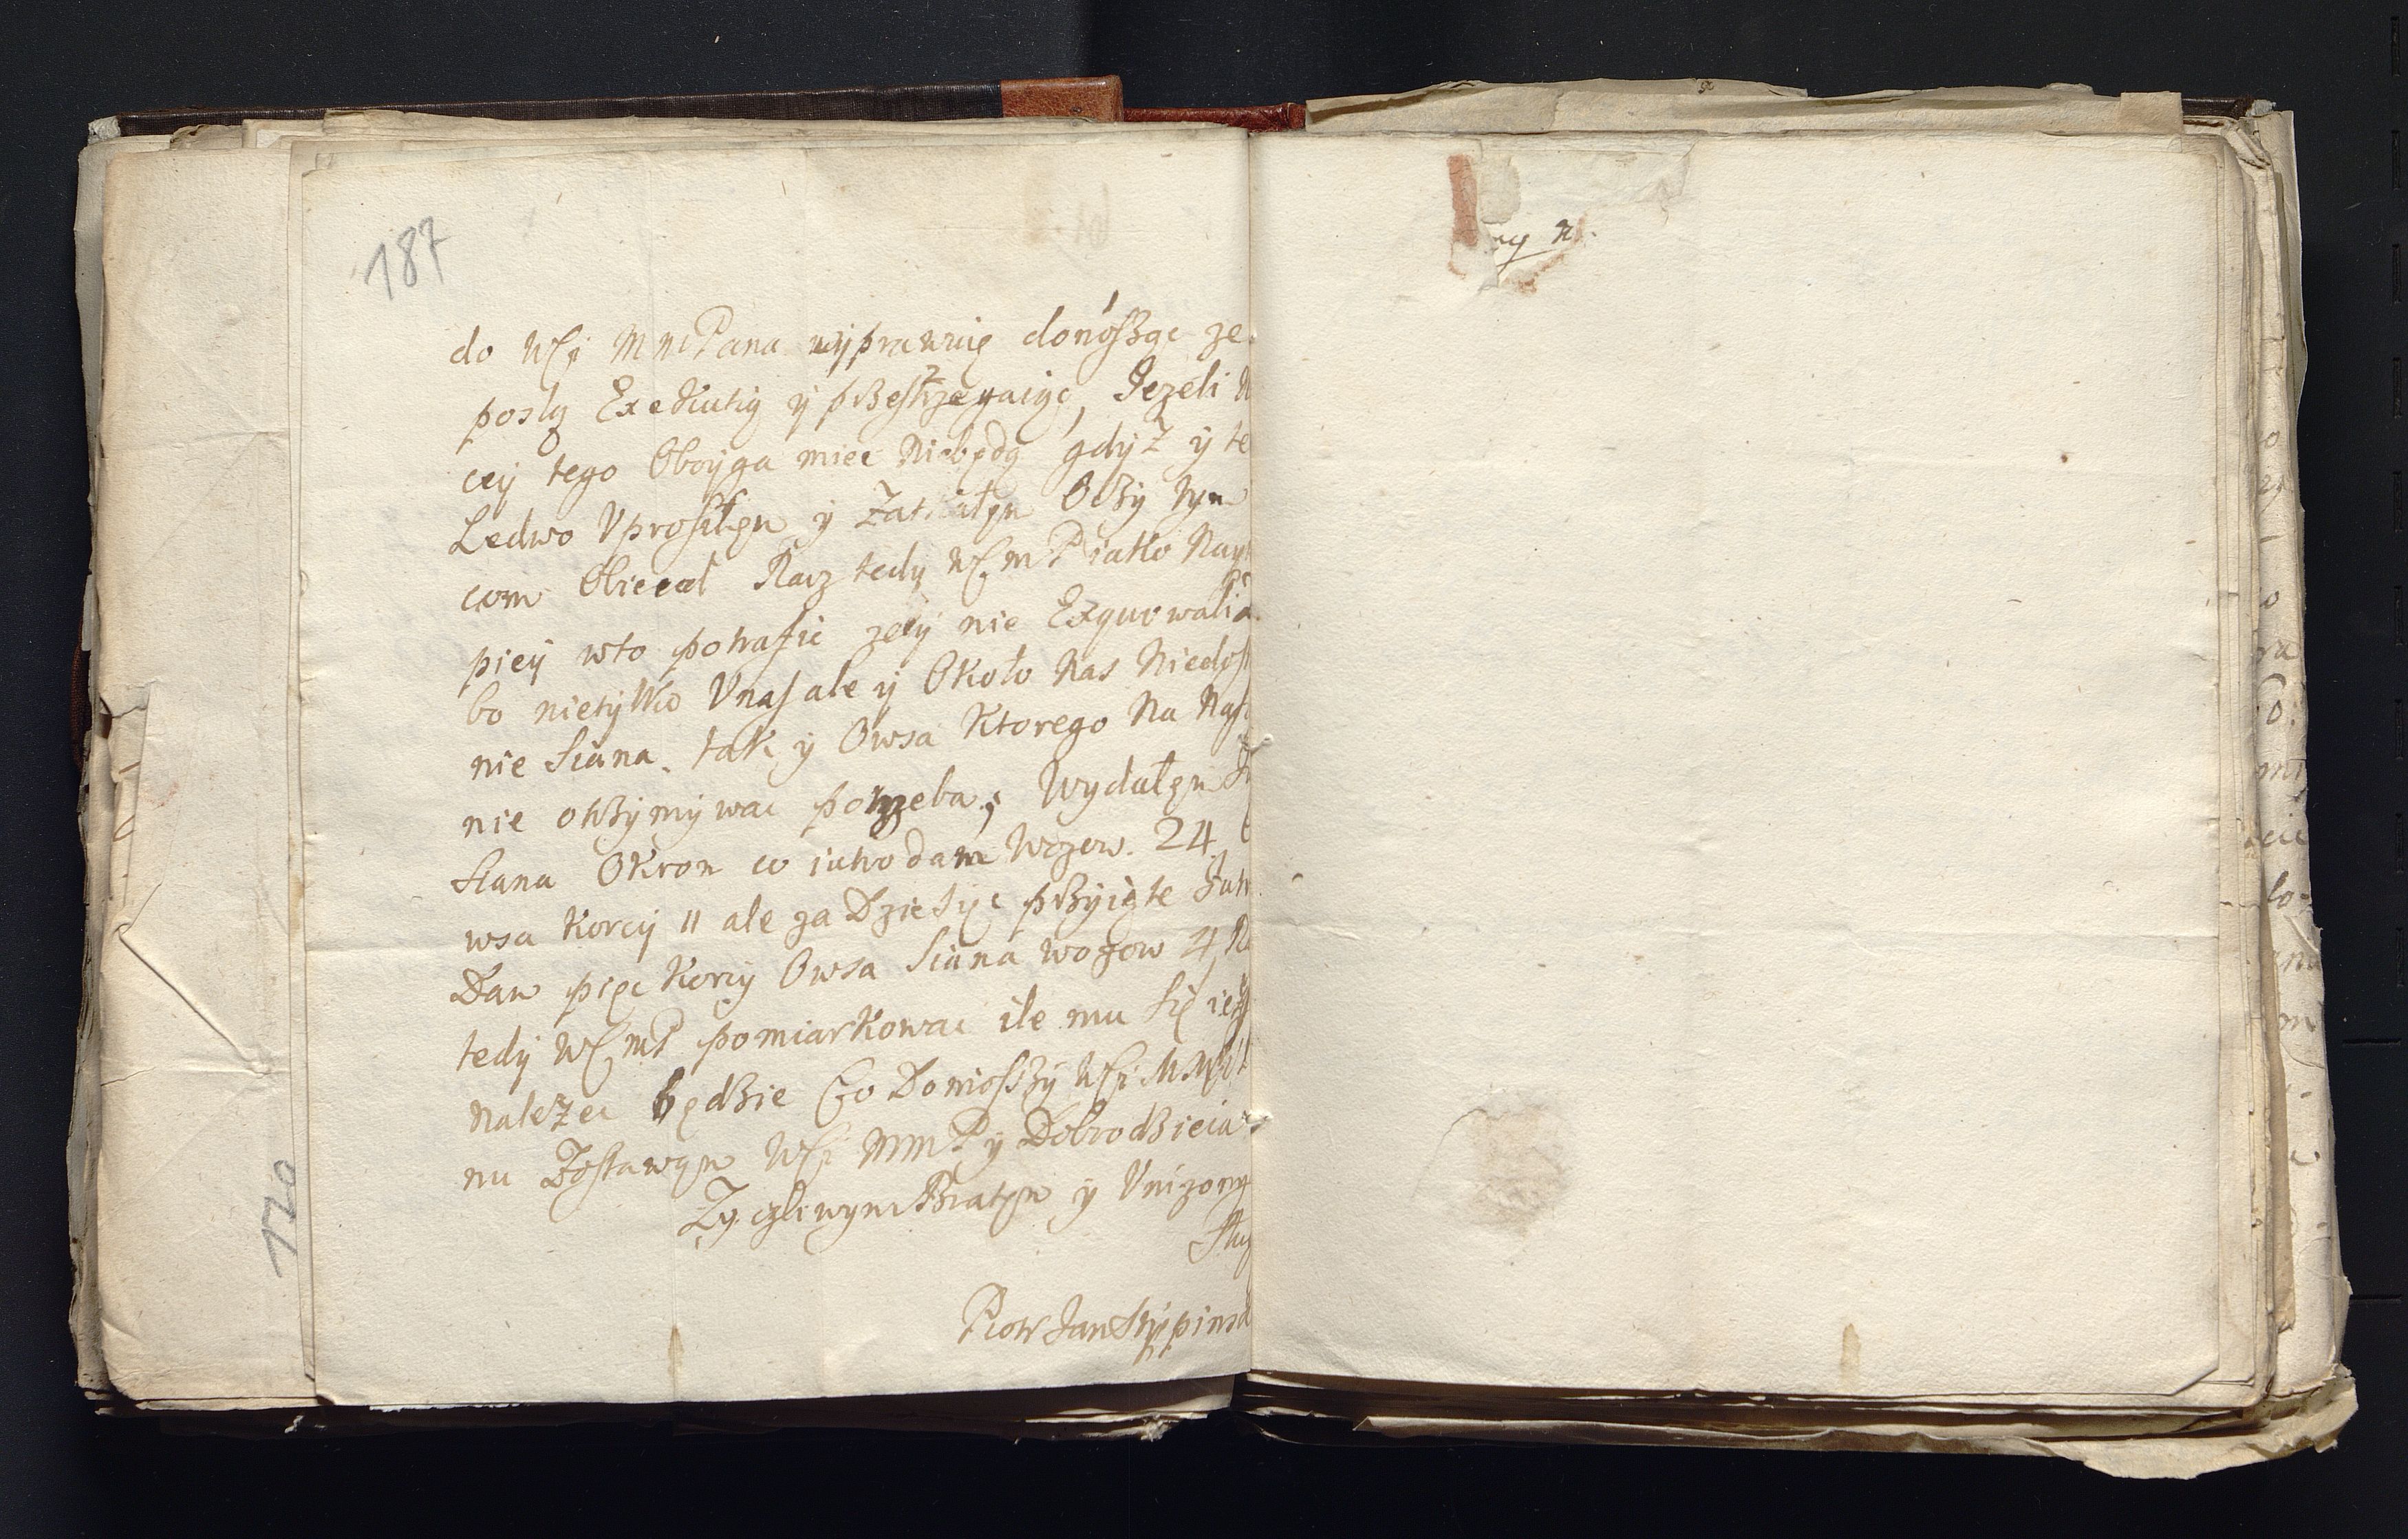 187
do WSi MMPana wyprawuię donosząc ze
poslą Exekutią y przestrzegaiąc, Jezeli
cey tego Oboyga miec Niebędą gdyz y te
Ledwo Vprosiłęm y Oczy Nym
com Obiecał Racz tedy WSmP iako Nay
piey wto potrafic zeby nie Exquowali
bo nietylko Vnas ale y Około Nas Niedos
nie Siana tak y Owsa Ktorego Na Nas
nie otrzymywac potrzeba; Wydałęm
Siana Okrom co iutro dam Wozow. 24
wsa Korcy 11 ale za Dziesięc przyięte Jutr
Dam pięc Korcy Owsa Siana wozow 4 Ra
tedy WSmP pomiarkowac ile mu Się ie
Nalezec będzie Co Doniosszy WSi MMP
nu Zostawąm WSi MMP y Dobrodzieia
Zyczliwym Bratęm y Vnizony
Slug
Piotr Jan
120